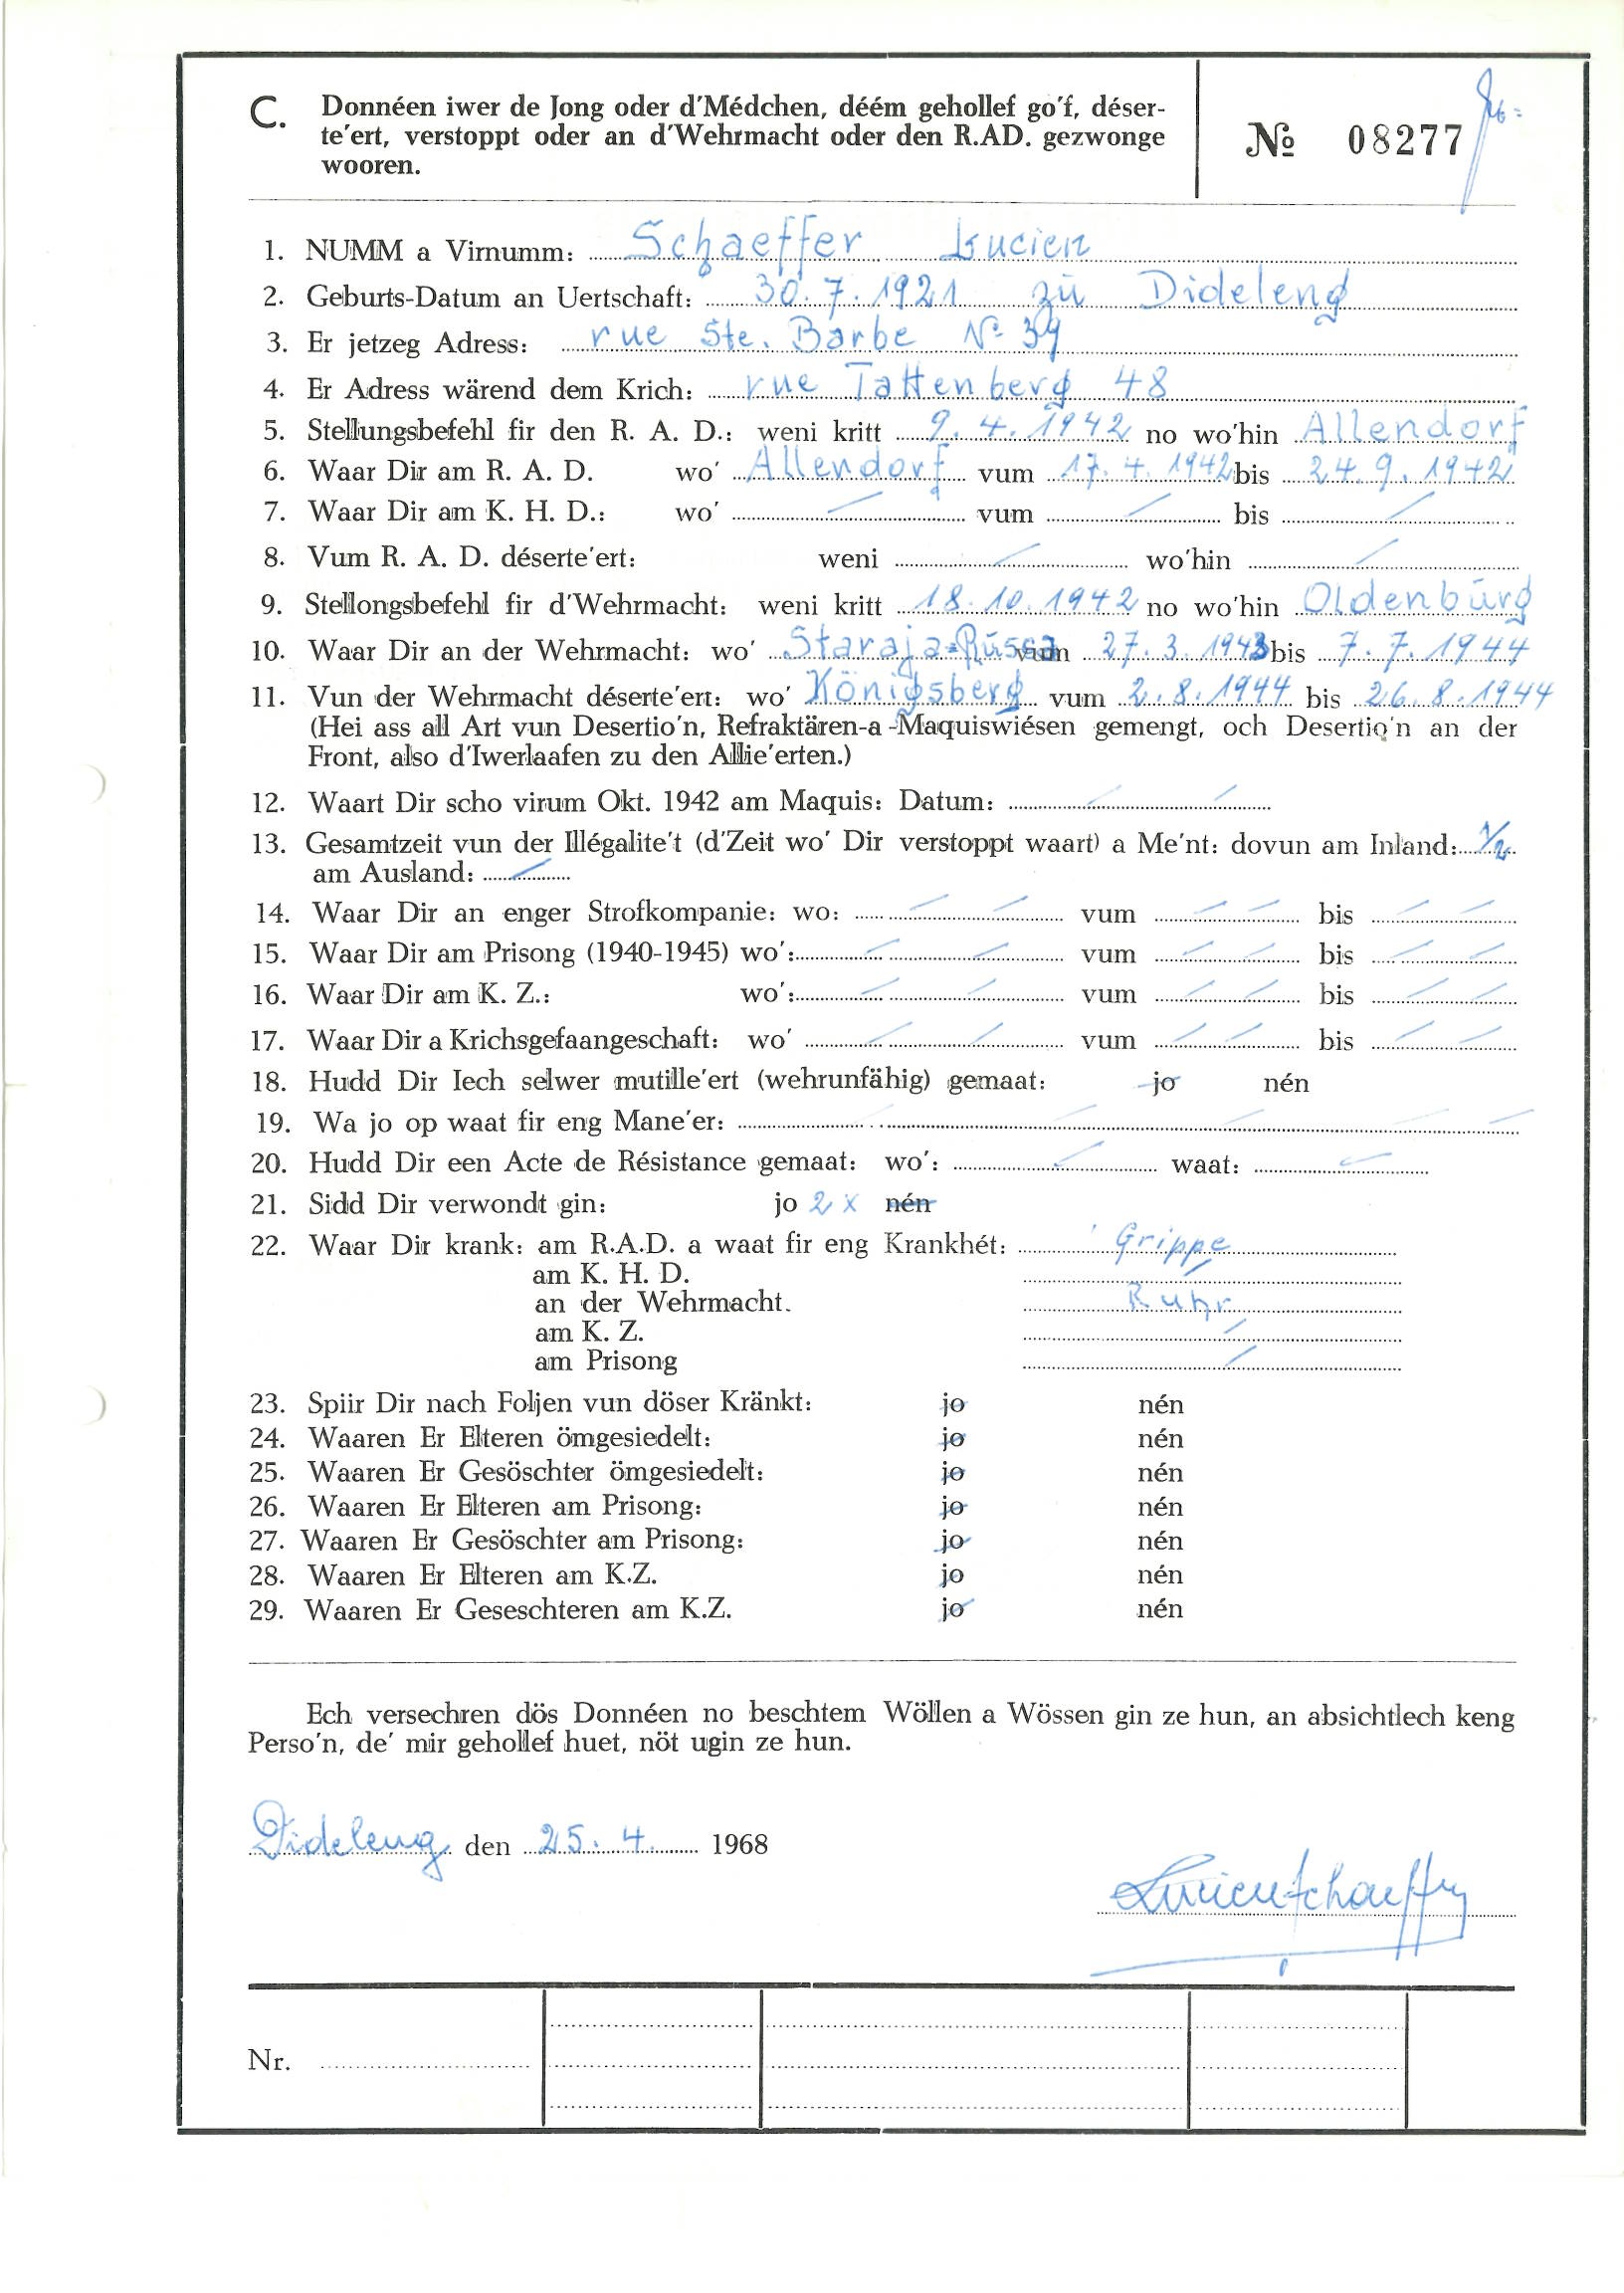 C. Donnéen iwer de Jong oder d'Médchen, déém gehollef go'f, déser-
te'ert, verstoppt oder an d'Wehrmacht oder den R.AD. gezwonge
wooren.
№ 08277
1. NUMM a Virnumm: Schaeffer Lucien
2. Geburts-Datum an Uertschaft: 30.7.1921 zu Dideleng
3. Er jetzeg Adress: rue Ste. Barbe No 39
4. Er Adress wärend dem Krich: rue Tattenberg 48
5. Stellungsbefehl fir den R. A. D.: weni kritt 9.4.1942 no wo'hin Allendorf
6. Waar Dir am R. A. D. wo' Allendorf vum 17.4.1942 bis 24.9.1942
7. Waar Dir am K. H. D.: wo' / vum / bis /
8. Vum R. A. D. déserte'ert: weni / wo'hin /
9. Stellongsbefehl fir d'Wehrmacht: weni kritt 18.10.1942 no wo'hin Oldenburg
10. Waar Dir an der Wehrmacht: wo' Staraja=Russa vum 27.3.1943 bis 7.7.1944
11. Vun der Wehrmacht déserte'ert: wo' Königsberg vum 2.8.1944 bis 26.8.1944
(Hei ass all Art vun Desertio'n, Refraktären-a-Maquiswiésen gemengt, och Desertio'n an der
Front, also d'Iwerlaafen zu den Allie'erten.)
12. Waart Dir scho virum Okt. 1942 am Maquis: Datum: / /
13. Gesamtzeit vun der Illégalite't (d'Zeit wo' Dir verstoppt waart) a Me'nt: dovun am Inland: 1/2
am Ausland: /
14. Waar Dir an enger Strofkompanie: wo: / / vum / / bis / /
15. Waar Dir am Prisong (1940-1945) wo': / / vum / / bis / /
16. Waar Dir am K. Z.: wo': / / vum / / bis / /
17. Waar Dir a Krichsgefaangeschaft: wo' / / vum / / bis / /
18. Hudd Dir Iech selwer mutille'ert (wehrunfähig) gemaat: jo nén
19. Wa jo op waat fir eng Mane'er: / / / / /
20. Hudd Dir een Acte de Résistance gemaat: wo': / waat: /
21. Sidd Dir verwondt gin: jo 2 x nén
22. Waar Dir krank: am R.A.D. a waat fir eng Krankhét: Grippe
am K. H. D. /
an der Wehrmacht. Ruhr
am K. Z. /
am Prisong /
23. Spiir Dir nach Foljen vun döser Kränkt: jo nén
24. Waaren Er Elteren ömgesiedelt: jo nén
25. Waaren Er Gesöschter ömgesiedelt: jo nén
26. Waaren Er Elteren am Prisong: jo nén
27. Waaren Er Gesöschter am Prisong: jo nén
28. Waaren Er Elteren am K.Z. jo nén
29. Waaren Er Geseschteren am K.Z. jo nén
Ech versechren dös Donnéen no beschtem Wöllen a Wössen gin ze hun, an absichtlech keng
Perso'n, de' mir gehollef huet, nöt ugin ze hun.
Dideleng den 25. 4. 1968
Lucien Schaeffer
Nr.